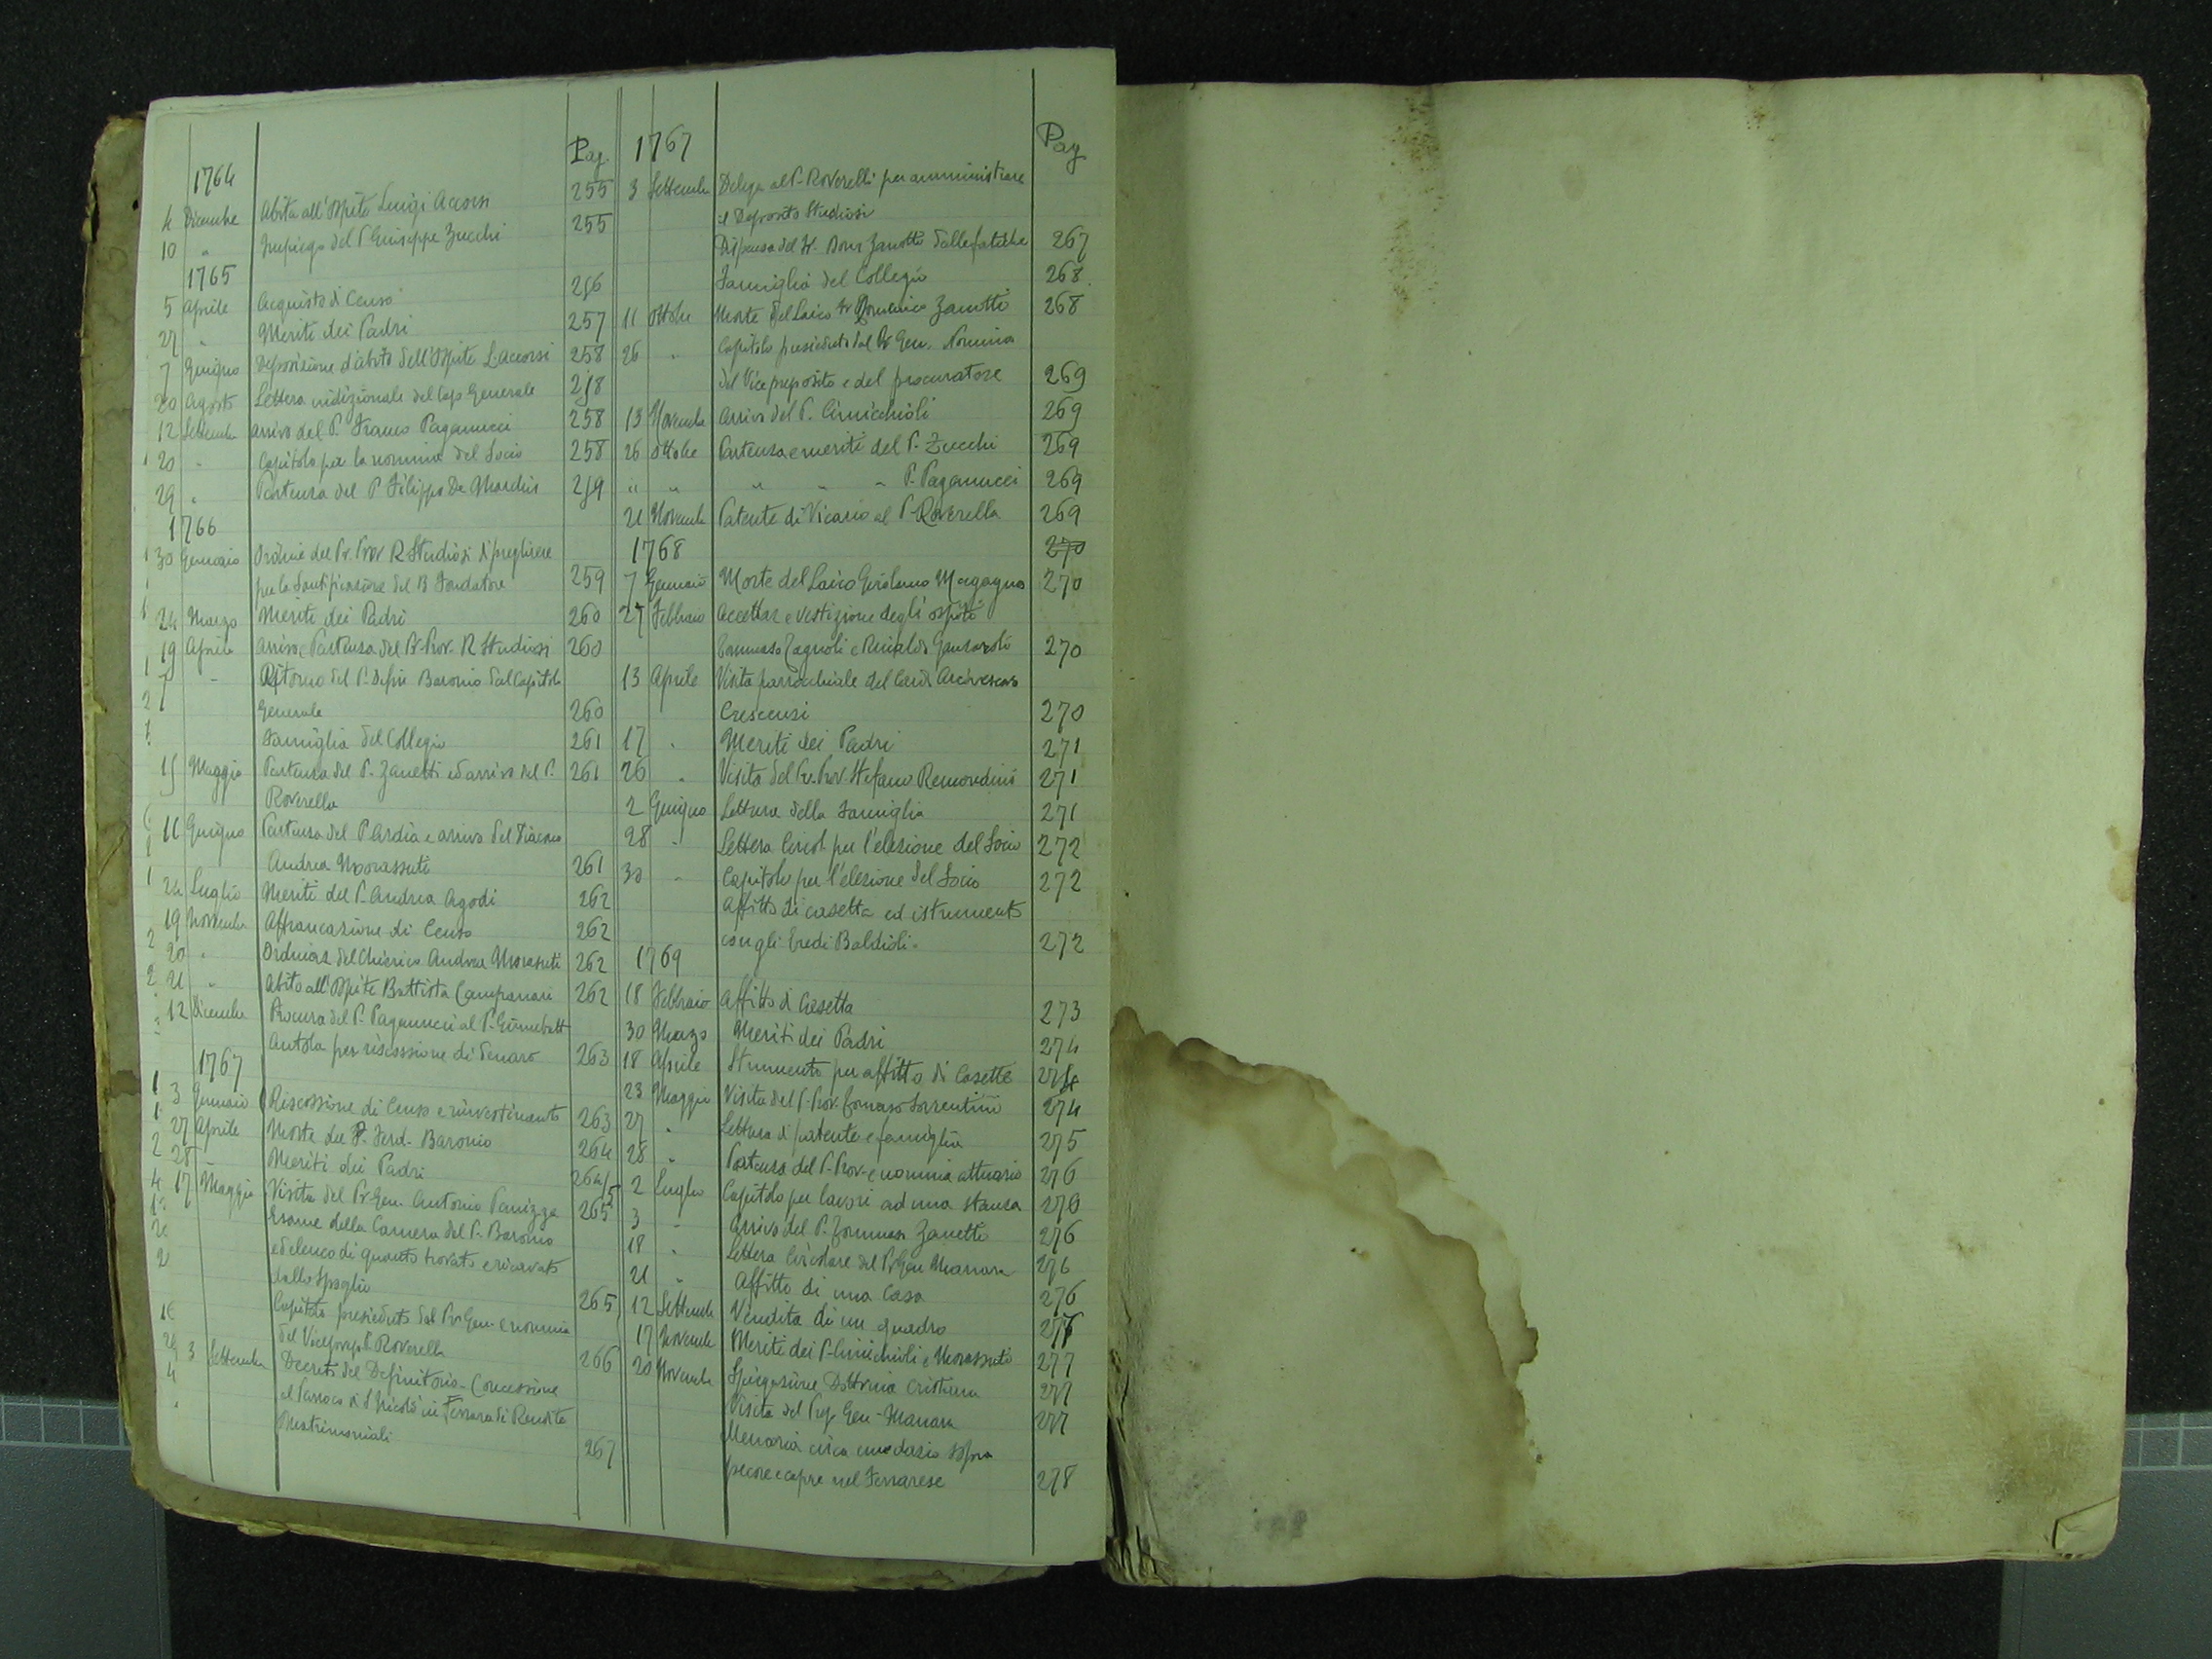 Pag.
1764
4 Dicembre Abito all'Ospite Luigi Accorsi 255
10 " Impiego del P. Giuseppe Zucchi 255
1765
5 Aprile Acquisto di Censo 256
27 " Meriti dei Padri 257
7 Giugno Deposizione d'abito dell'Ospite L. Accorsi 258
20 Agosto Lettera indizionale del Cap. Generale 258
12 Settembre arrivo del P. Franco Paganucci 258
20 " Capitolo per la nomina del Socio 258
29 " Partenza del P. Filippo De Marchis 259
1766
30 Gennaio Ordine del Pr. Prov. R. Studiosi di preghiere
per la Santificazione del B. Fondatore 259
24 Marzo Meriti dei Padri 260
19 Aprile arrivo e Partenza del Pr. Prov. R. Studiosi 260
" Ritorno del P. Defin Baronio dal Capitolo
Generale 260
Famiglia del Collegio 261
15 Maggio Partenza del P. Zanetti ed arrivo del P. 261
Roverella
16 Giugno Partenza del P. Ardia e arrivo del Diacono
Andrea Morassuti 261
24 Luglio Meriti del P. Andrea Agodi 262
19 Novembre Affrancazione di Censo 262
20 " Ordinaz. del Chierico Andrea Morassuti 262
21 " Abito all'Ospite Battista Campanari 262
12 Dicembre Procura del P. Paganucci al P. Giambatt
Antola per riscossione di denaro 263
1767
3 Gennaio Riscossione di Censo e rinvestimento 263
27 Aprile Morte del P. Ferd. Baronio 264
28 " Meriti dei Padri 264
17 Maggio Visita del Pr. Gen. Antonio Panizza 265
Esame della Camera del P. Baronio
ed elenco di quanto trovato e ricavato
dallo Spoglio 265
Capitolo presieduto dal Pr. Gen. e nomina
del Viceprep. P. Roverella 266
3 Settembre Decreto del Definitorio - Concessione
al Parroco di S. Nicolò in Ferrara di Rendite
Matrimoniali 267
1767 Pag
3 Settembre Delega al P. Roverelli per amministrare
il Deposito Studiosi
Dispensa del Fr. Dom Zanotti dalle fatiche 267
Famiglia del Collegio 268
11 Ottobre Morte del Laico Fr. Domenico Zanotti 268
26 " Capitolo presieduto dal Pr. Gen. Nomina
del Vicepreposito e del procuratore 269
13 Novembre Arrivo del P. Cimicchioli 269
26 Ottobre Partenza e meriti del P. Zucchi 269
" " " " " P. Paganucci 269
21 Novembre Patente di Vicario al P. Roverella 269
1768 270
7 Gennaio Morte del Laico Girolamo Magagna 270
27 Febbraio Accettaz e Vestizione degli ospiti
Tommaso Zagnoli e Rinaldo Ganzaroli 270
13 Aprile Visita parrocchiale del Card. Arcivescovo
Crescenzi 270
17 " Meriti dei Padri 271
26 " Visita del Pr. Prov. Stefano Remondini 271
2 Giugno Lettura della Famiglia 271
28 " Lettera Circol. per l'elezione del Socio 272
30 " Capitolo per l'elezione del Socio 272
Affitto di casetta ed istrumento
con gli Eredi Baldioli. 272
1769
18 Febbraio Affitto di Casetta 273
30 Marzo Meriti dei Padri 274
18 Aprile Strumento per affitto di Casette 274
23 Maggio Visita del P. Prov. Tomaso Sorrentini 274
27 " Lettura di patente e famiglia 275
28 " Partenza del P. Prov. e nomina attuario 276
2 Luglio Capitolo per lavori ad una stanza 276
3 " Arrivo del P. Tommaso Zanetti 276
18 " Lettera Circolare del Pr. Gen. Manara 276
21 " Affitto di una Casa 276
12 Settembre Vendita di un quadro 277
17 Novembre Meriti dei P. Cimichioli e Morassuti 277
20 Novembre Spiegazione Dottrina Cristiana 277
Visita del Prep. Gen. Manara 277
Memoria circa un dazio sopra
pecore e capre nel Ferrarese 278